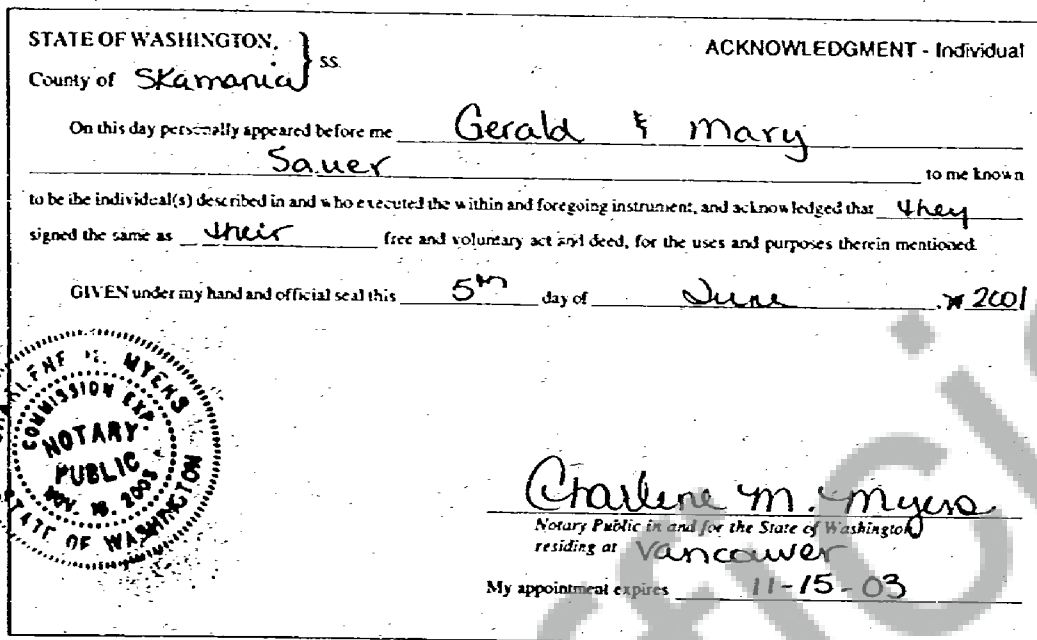 STATE OF WASHINGTON, } SS. ACKNOWLEDGMENT - Individual
County of Skamania
On this day personally appeared before me Gerald & Mary
Sauer to me known
to be the individual(s) described in and who executed the within and foregoing instrument, and acknowledged that they
signed the same as their free and voluntary act and deed, for the uses and purposes therein mentioned.
GIVEN under my hand and official seal this 5th day of June, 2001
MYERS
COMMISSION EXP.
NOTARY
PUBLIC
NOV. 2003
STATE OF WASHINGTON
Charlene M. Myers
Notary Public in and for the State of Washington,
residing at Vancouver
My appointment expires 11-15-03